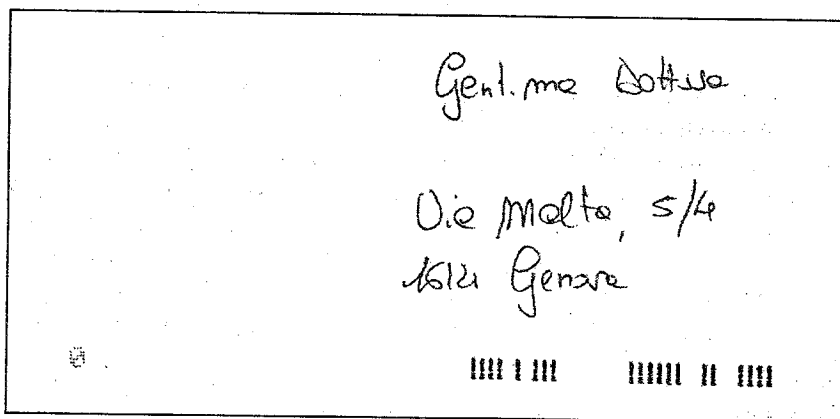 Gent.ma Dott.ssa
Via Malta, 5/4
16121 Genova